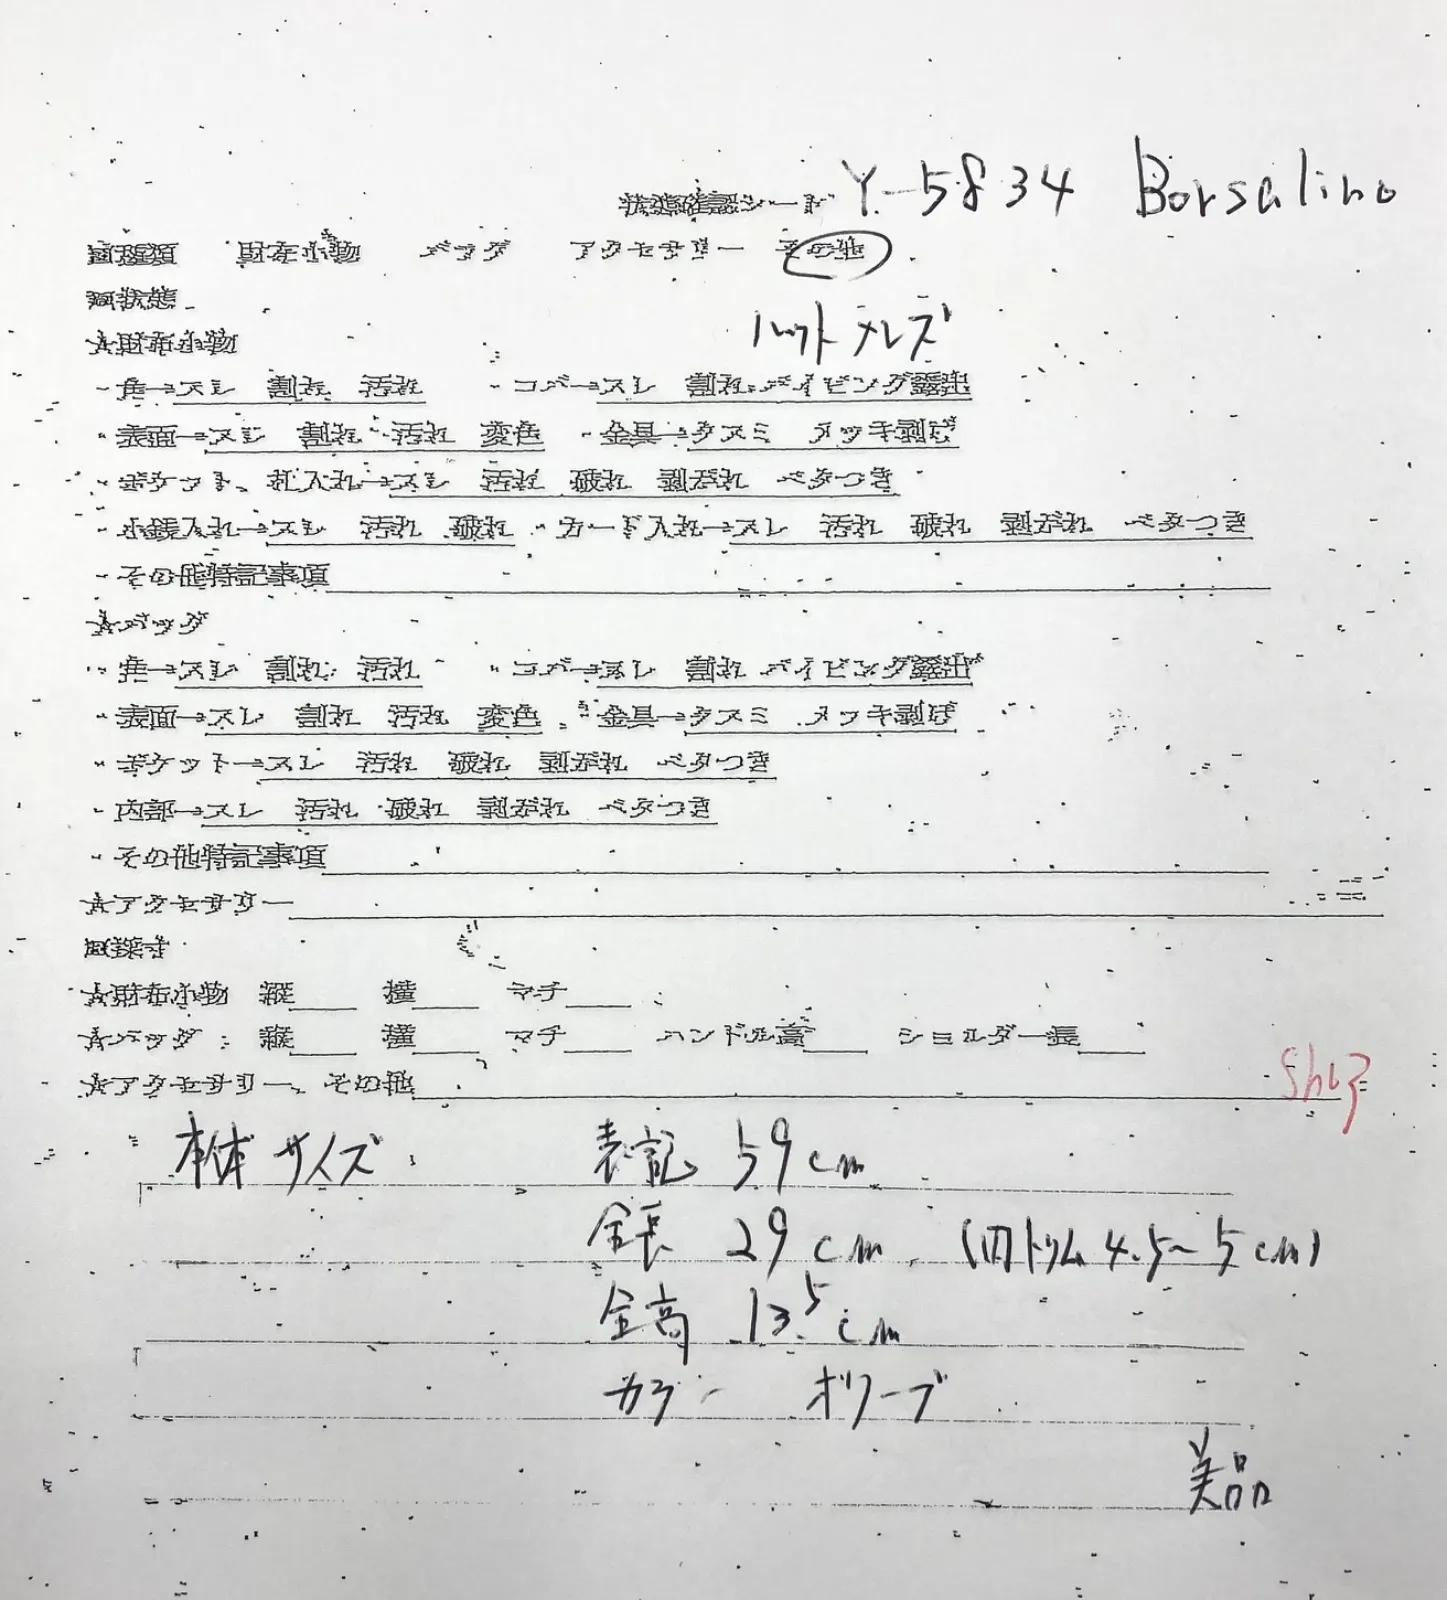 状態確認シード Y-5834 Borsalino
種類 財布小物 バッグ アクセサリー その他
状態
ハット メンズ
☆財布小物
・角→スレ 割れ 汚れ ・コバ→スレ 割れ パイピング露出
・表面→スレ 割れ 汚れ 変色 ・金具→クスミ メッキ剥げ
・ポケット、札入れ→スレ 汚れ 破れ 剥がれ ベタつき
・小銭入れ→スレ 汚れ 破れ ・カード入れ→スレ 汚れ 破れ 剥がれ ベタつき
・その他特記事項
☆バッグ
・角→スレ 割れ 汚れ ・コバ→スレ 割れ パイピング露出
・表面→スレ 割れ 汚れ 変色 ・金具→クスミ メッキ剥げ
・ポケット→スレ 汚れ 破れ 剥がれ ベタつき
・内部→スレ 汚れ 破れ 剥がれ ベタつき
・その他特記事項
☆アクセサリー
採寸
☆財布小物 縦 横 マチ
☆バッグ 縦 横 マチ ハンドル高 ショルダー長
☆アクセサリー、その他
本体サイズ 表記 59cm
全長 29cm (内トリム 4.5~5cm)
全高 13.5cm
カラー オリーブ
美品